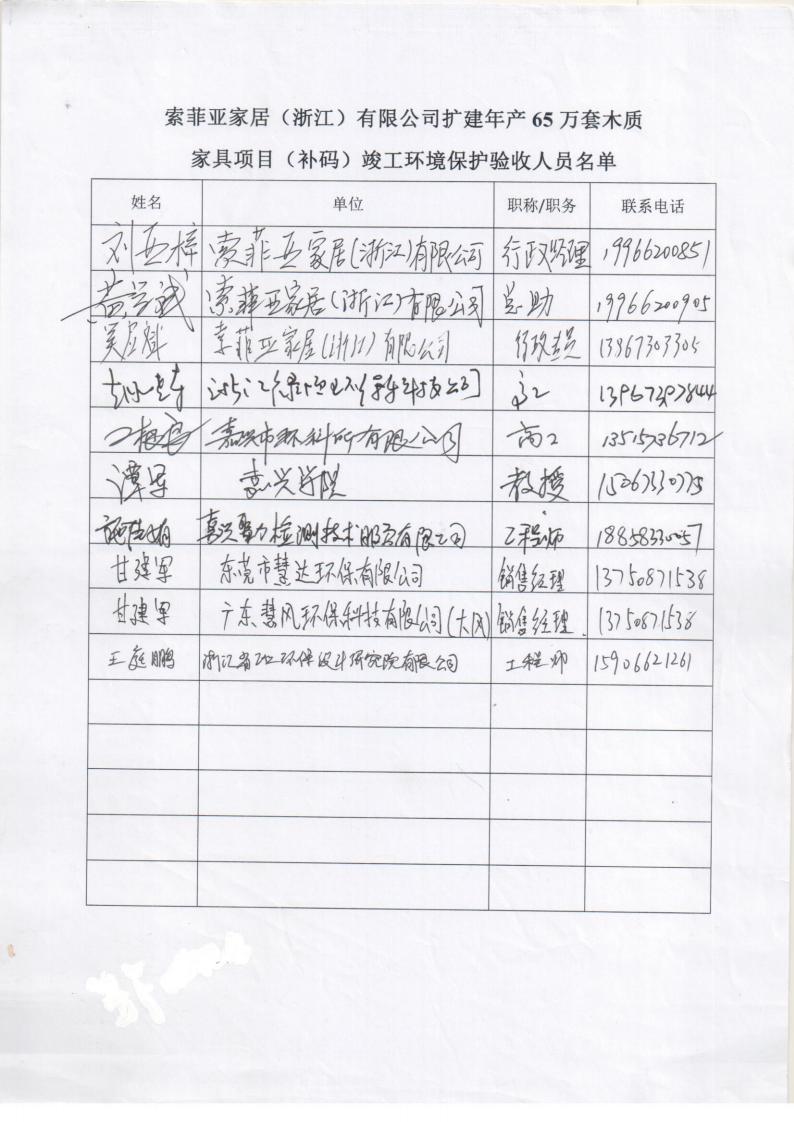 索菲亚家居（浙江）有限公司扩建年产 65 万套木质
家具项目（补码）竣工环境保护验收人员名单
姓名 单位 职称/职务 联系电话
刘亚梓 索菲亚家居(浙江)有限公司 行政经理 19966200851
索菲亚家居(浙江)有限公司 总助 19966200905
吴启斌 索菲亚家居(浙江)有限公司 行政专员 13967303305
高工
嘉兴市环科所有限公司 高工 13515736712
谭军 嘉兴学院 教授
嘉兴聚力检测技术服务有限公司 工程师
甘建军 东莞市慧达环保有限公司 销售经理 13750871538
甘建军 广东慧风环保科技有限公司(大风) 销售经理 13750871538
王庭鹏 浙江省工业环保设计研究院有限公司 工程师 15906621261